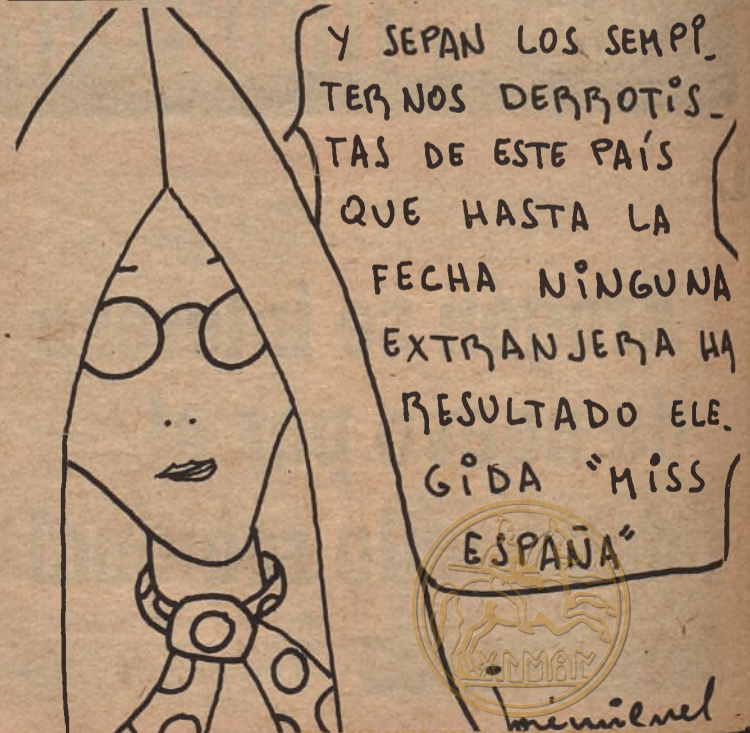 Y SEPAN LOS SEMPI-
TERNOS DERROTIS-
TAS DE ESTE PAÍS
QUE HASTA LA
FECHA NINGUNA
EXTRANJERA HA
RESULTADO ELE-
GIDA "MISS
ESPAÑA"